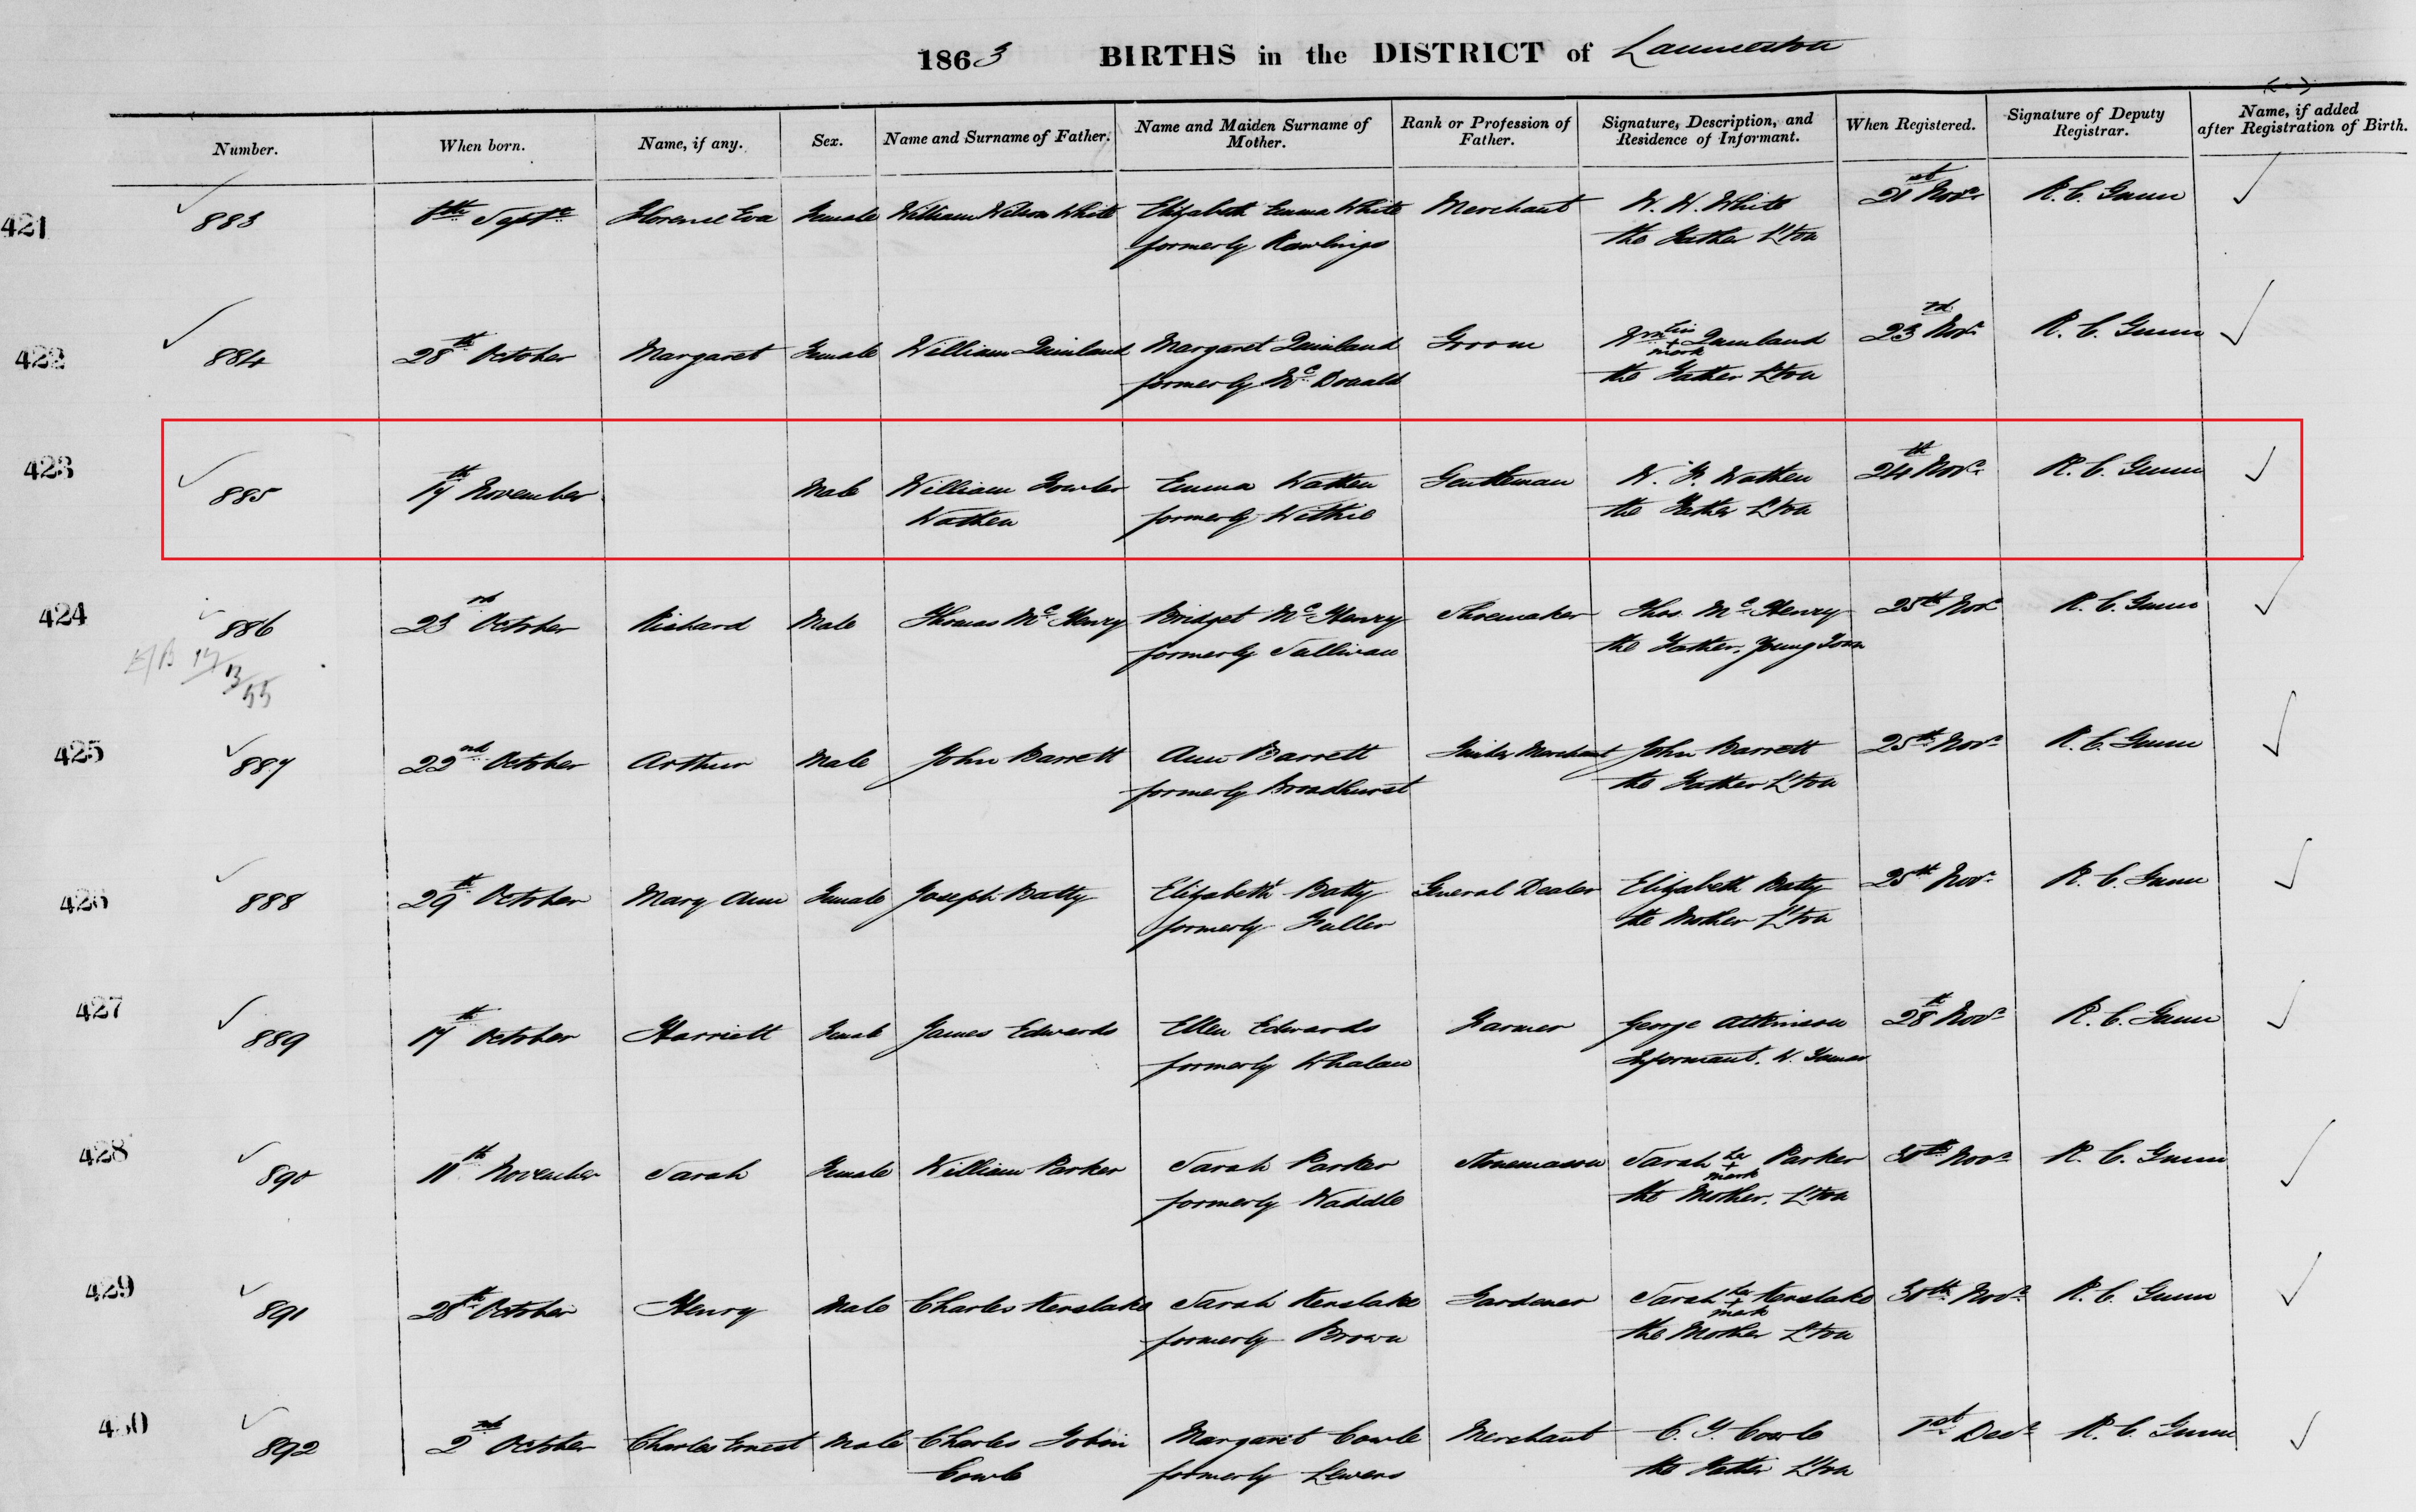 1863 BIRTHS in the DISTRICT of Launceston
Number. When born. Name, if any. Sex. Name and Surname of Father. Name and Maiden Surname of Mother. Rank or Profession of Father. Signature, Description, and Residence of Informant. When Registered. Signature of Deputy Registrar. Name, if added after Registration of Birth.
421 883 Septr Florence Eva Female William Wilson White Elizabeth Emma White Merchant W. W. White 21st Novr R. C. Gunn
formerly Rawlings the Father L'ton
422 884 28th October Margaret Female William Quinland Margaret Quinland Groom Wm his + mark Quinland 23rd Novr R. C. Gunn
formerly McDonald the Father L'ton
423 885 17th November Male William Fowler Emma Wathen Gentleman W. F. Wathen 24th Novr R. C. Gunn
Wathen formerly the Father L'ton
424 886 23rd October Richard Male Thomas McHenry Bridget McHenry Shoemaker Thos. McHenry 25th Novr R. C. Gunn
formerly Sullivan the Father, Young Town
425 887 22nd October Arthur Male John Barrett Ann Barrett Timber Merchant John Barrett 25th Novr R. C. Gunn
formerly Broadhurst the Father L'ton
426 888 29th October Mary Ann Female Joseph Batty Elizabeth Batty General Dealer Elizabeth Batty 25th Novr R. C. Gunn
formerly Fuller the Mother L'ton
427 889 17th October Harriett Female James Edwards Ellen Edwards Farmer George Atkinson 28th Novr R. C. Gunn
formerly Whalan Informant. W. Tamar
428 890 11th November Sarah Female William Parker Sarah Parker Stonemason Sarah her + mark Parker 30th Novr R. C. Gunn
formerly Waddle the Mother, L'ton
429 891 28th October Henry Male Charles Kenslake Sarah Kenslake Gardener Sarah her + mark Kenslake 30th Novr R. C. Gunn
formerly Brown the Mother L'ton
430 892 2nd October Charles Ernest Male Charles Tobin Margaret Cowle Merchant C. T. Cowle 1st Decr R. C. Gunn
Cowle formerly Lewers the Father L'ton